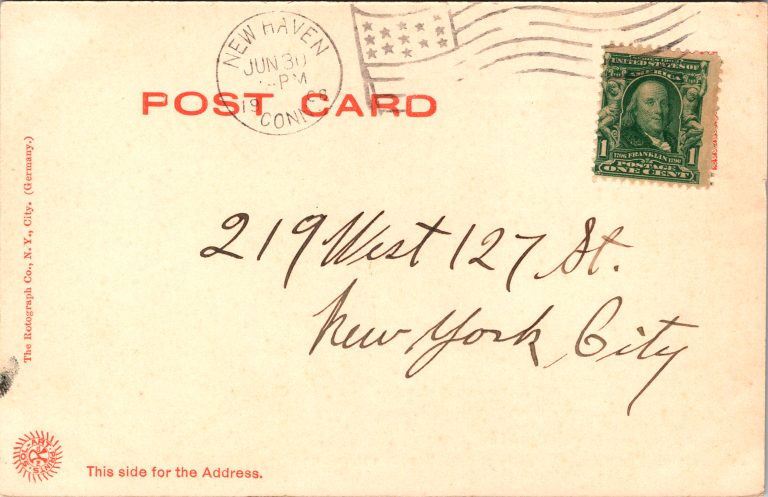 NEW HAVEN
JUN 30
PM
19
CONN.
POST CARD
SERIES 1902
UNITED STATES OF
AMERICA
1706 FRANKLIN 1790
1 1
POSTAGE
ONE CENT
219 West 127 St.
New York City
The Rotograph Co., N. Y., City. (Germany.)
This side for the Address.